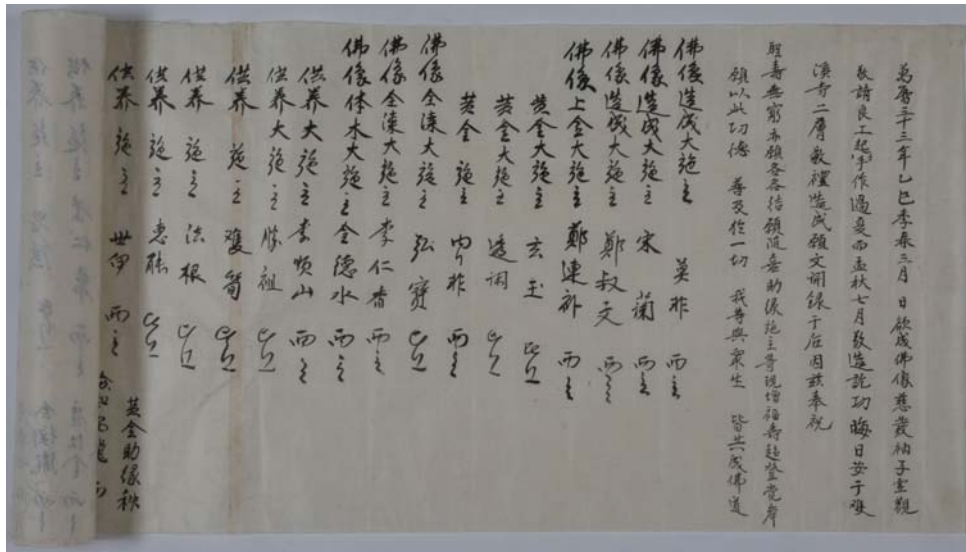 萬曆三十三年乙巳季春三月 日欲成佛像慈發衲子靈觀
敬請良工起手作過夏而孟秋七月敬造訖功晦日安于雙
溪寺二層敬禮造成願文開錄于后因玆奉祝
聖壽無窮亦願各各結願隨喜助緣施主等現增福壽超登覺岸
願以此功德 普及於一切 我等與衆生 皆共成佛道
佛像造成大施主 莫非 両主
佛像造成大施主 宋蘭 両主
佛像造成大施主 鄭叔文 両主
佛像上金大施主 鄭連卜 両主
黃金大施主 玄玉 比丘
黃金大施主 比丘
黃金施主 非 両主
佛像全漆大施主 弘寶 比丘
佛像全漆大施主 李仁香 両主
佛像体木大施主 金德水 両主
供养大施主 李順山 両主
供养大施主 勝祖 比丘
供养施主 雙筍 比丘
供养施主 法根 比丘
供养施主 惠聰 比丘
供养施主 世伊 両主
黃金助緣秩